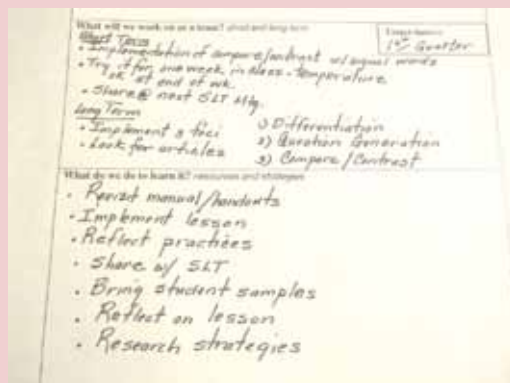 What will we work on as a team? short and long-term
Short Term
1st Quarter
• Implementation of compare/contrast w/signal words
• Try it for one week in class - temperature
at end of wk.
• Share @ next SLT Mtg.
Long Term
• Implement 3 foci 1) Differentiation
• Look for articles 2) Question Generation
3) Compare/Contrast
What do we do to learn it? resources and strategies
• Revisit manual/handouts
• Implement lesson
• Reflect practices
• Share w/ SLT
• Bring student samples
• Reflect on lesson
• Research strategies